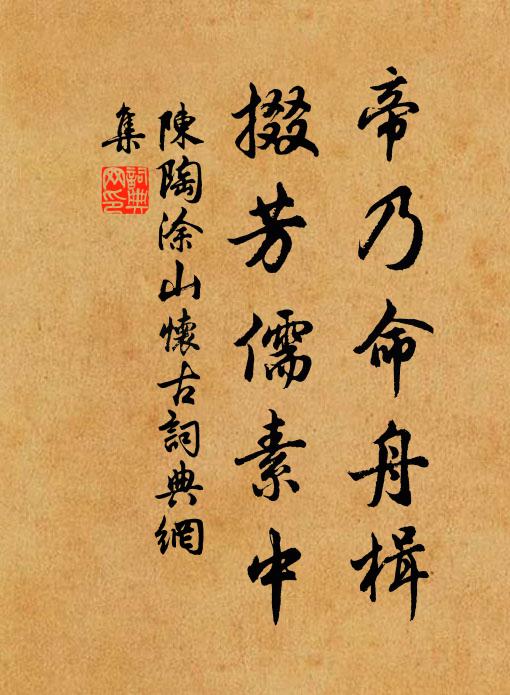 帝乃命舟楫
掇芳儒素中
陳陶涂山懷古詞典網
集
詞典网印